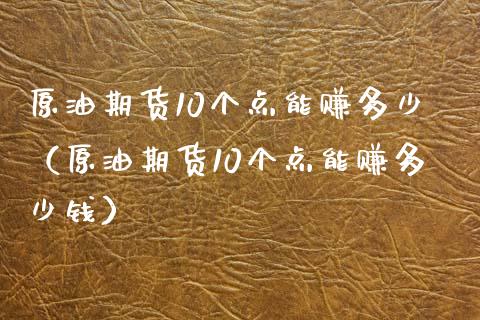 原油期货10个点能赚多少
（原油期货10个点能赚多
少钱）